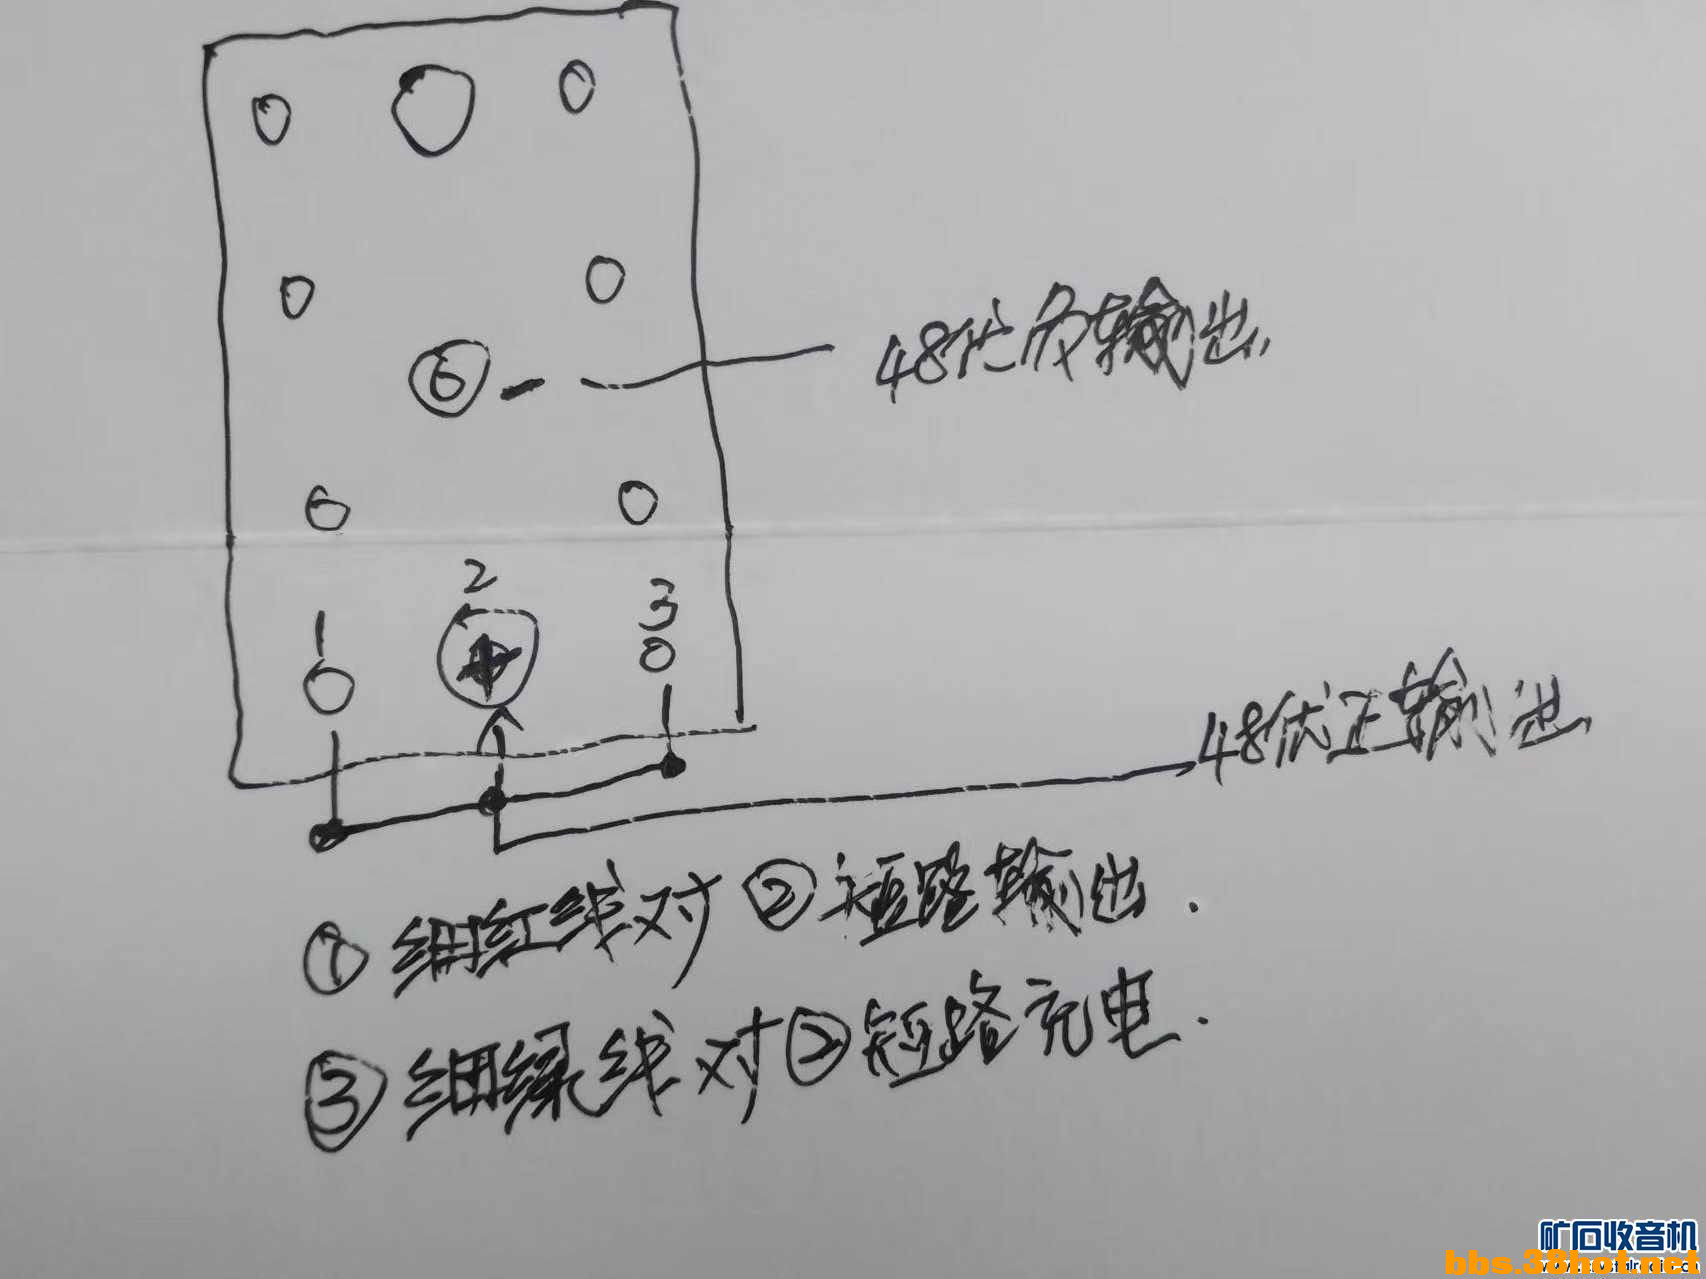 ⑥ -
48伏负输出
2
1
3
+
48伏正输出
① 细红线对②短路输出.
③ 细绿线对②短路充电.
矿石收音机
bbs.38hot.net